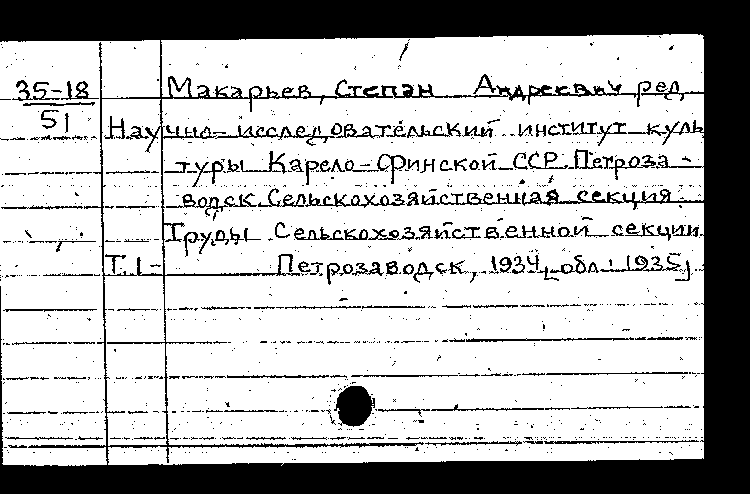 35-18
51
Макарьев, Степан Андреевич ред.
Научно-исследовательский институт куль
туры Карело-Финской ССР. Петроза-
водск. Сельскохозяйственная секция.
Труды Сельскохозяйственной секции
Т. 1- Петрозаводск, 1934 [обл.: 1935]